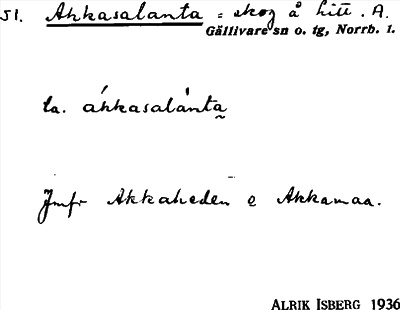 51. Akkasalanta = skog å hitt. A.
Gällivare sn o. tg, Norrb. l.
la. ákkasalànta̰
Jmfr Akkaheden o Akkamaa.
ALRIK ISBERG 1936